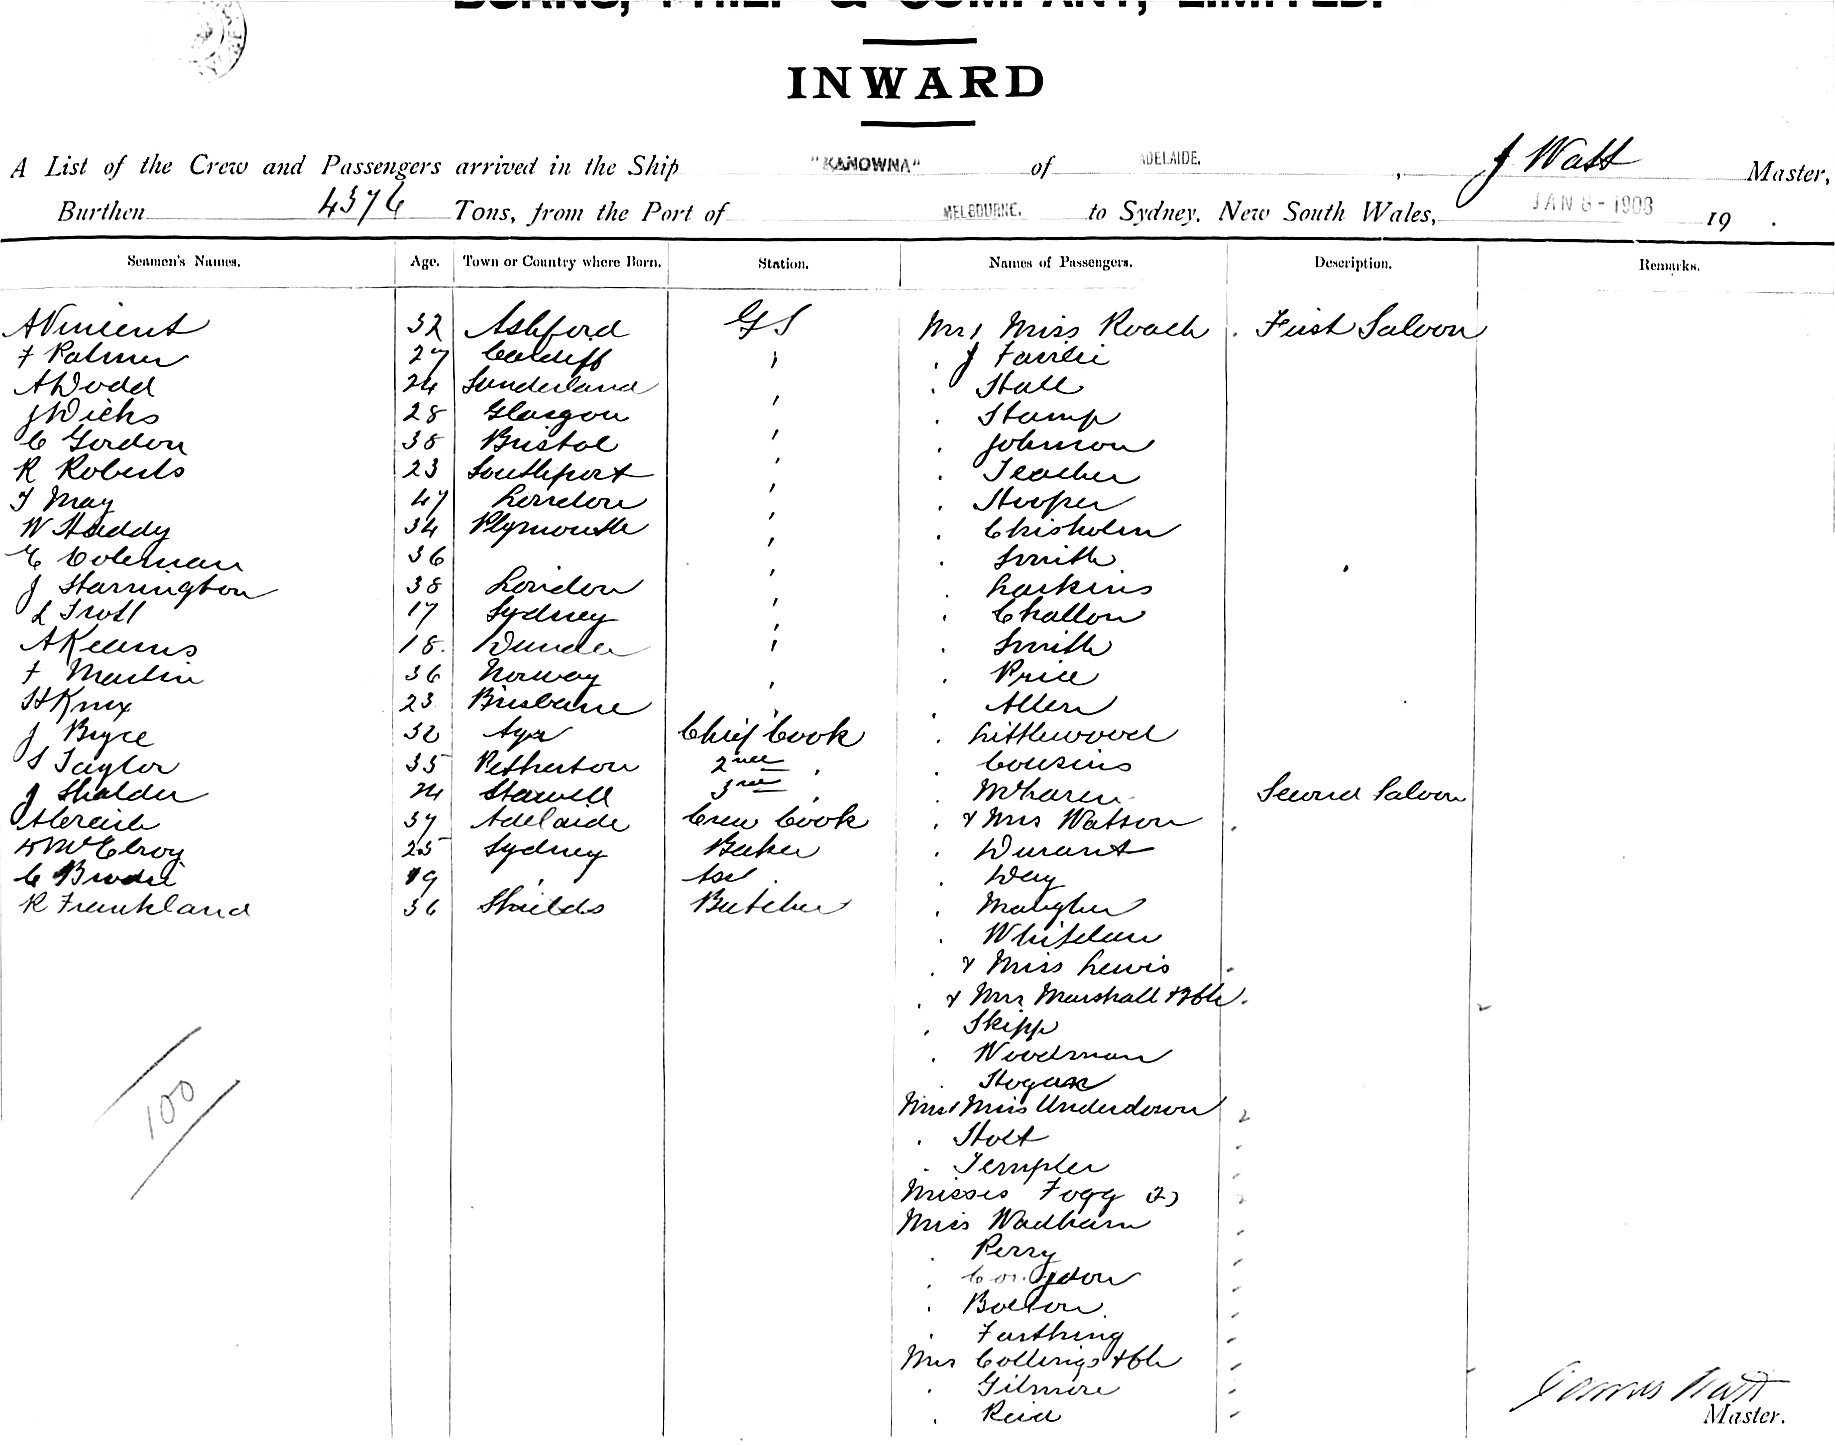 BURNS, PHILP & COMPANY, LIMITED.
INWARD
A List of the Crew and Passengers arrived in the Ship "KANOWNA" of ADELAIDE, J Watt Master,
Burthen 4376 Tons, from the Port of MELBOURNE, to Sydney, New South Wales, JAN 8 - 1908 19 .
Seamen's Names. Age. Town or Country where Born. Station. Names of Passengers. Description. Remarks.
A Vincent 32 Ashford G S Mr & Miss Roach . First Saloon
F Palmer 27 Cardiff ' . J Fairlie
A Dodd 24 Sunderland ' . Hall
J Wicks 28 Glasgow ' . Stamp
C Gordon 38 Bristol ' . Johnson
R Roberts 23 Southport ' . Teacher
T May 47 London ' . Hooper
W Haddy 34 Plymouth ' . Chisholm
E Coleman 36 ' . Smith
J Harrington 38 London ' . Larkins
L Trott 17 Sydney ' . Challon
A Kearns 18. Dundee ' . Smith
F Martin 36 Norway ' . Price
H Knox 23 Brisbane ' . Allen
J Bryce 32 Ayr Chief Cook . Littlewood
S Taylor 35 Petherton 2nd . Cousins
J Shalder 24 Stawell 3rd . McLaren Second Saloon
37 Adelaide Crew Cook . & Mrs Watson .
McElroy 25 Sydney Baker . Durant
C Brodie 19 ' Asst . Day
R Frankland 36 Shields Butcher . Maugher
. Whitelaw
. & Miss Lewis
. & Mrs Marshall & 2 Ch.
. Skipp
. Woodman
. Hogan
Mrs & Miss Underdown
. Holt
. Templer
Misses Fogg (2)
Miss Wadham
. Perry
. Congdon
. Bolton
. Farthing
Mrs Collings & Ch
. Gilmore
. Reid
100
James Watt
Master.